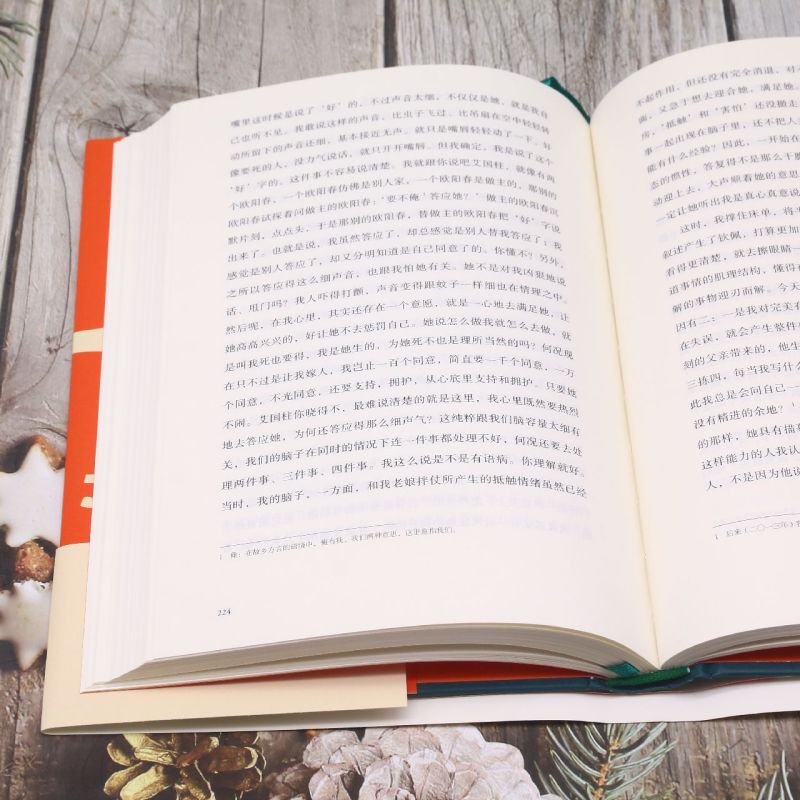 嘴里这时候是说了‘好’的，不过声音太细，不仅仅是她，就是我自
己也听不见。我敢说这样的声音，比虫子飞过、比吊扇在空中轻轻转
动所留下的声音还细，基本接近无声。就只是嘴唇轻轻动了一下，好
像要死的人，没力气说话，就只开开嘴唇。但我确定，我是说了这个
‘好’字的。这件事不容易说清楚。我就跟你说吧艾国柱，就像有两
个欧阳春，一个欧阳春仿佛是别人家，一个欧阳春是做主的，那别的
欧阳春试探着问做主的欧阳春：‘要不俺¹答应她？’做主的欧阳春沉
默片刻，点点头，于是那别的欧阳春，替做主的欧阳春把‘好’字说
出来了。也就是说，我虽然答应了，却总感觉是别人替我答应了；我
感觉是别人答应了，却又分明知道是自己同意了的。你懂不？另外，
之所以答应得这么细声音，也跟我怕她有关。她不是对我凶狠地说
话、甩门吗？我人吓得打颤，声音变得跟蚊子一样细也在情理之中。
然后呢，在我心里，其实还存在一个意愿，就是一心地去满足她，让
她高高兴兴的，好让她不去惩罚自己。她说怎么做我就怎么去做，就
是叫我死也要得，我是她生的，为她死不也是理所当然的吗？何况现
在只不过是让我嫁人，我岂止一百个同意，简直要一千个同意，一万
个同意，不光同意，还要支持，拥护，从心底里支持和拥护。只要她
不闹。艾国柱你晓得不，最难说清楚的就是这里，我心里既然要热烈
地去答应她，为何还答应得那么细声气？这纯粹跟我们脑容量太细有
关，我们的脑子在同时的情况下连一件事都处理不好，何况还要去处
理两件事、三件事、四件事。我这么说是不是有语病。你理解就好。
当时，我的脑子，一方面，和我老娘拌仗所产生的抵触情绪虽然已经
224
不起作用，但还没有完全消退，对
满，又急于想去迎合她，满足她。
所，‘抵触’和‘害怕’还没撤走
事一起出现在脑子里，还不把人
能有什么经验？因此，一开始在
态的惯性，答复得不是那么干
动迎上去，大声顺着她的意思
一定让她听出我是真心真意
这时，我撑住床单，将半
叙述产生了钦佩，打算更加
看得更清楚，就去擦眼睛
道事情的肌理结构，懂得
解的事物迎刃而解。今天
因有二：一是我对完美
在失误，就会产生整件
刻的父亲带来的，他生
三拣四，每当我写什么
此我总是会问自己一
没有精进的余地？
的那样，她具有描
这样能力的人我认
人，不是因为他说